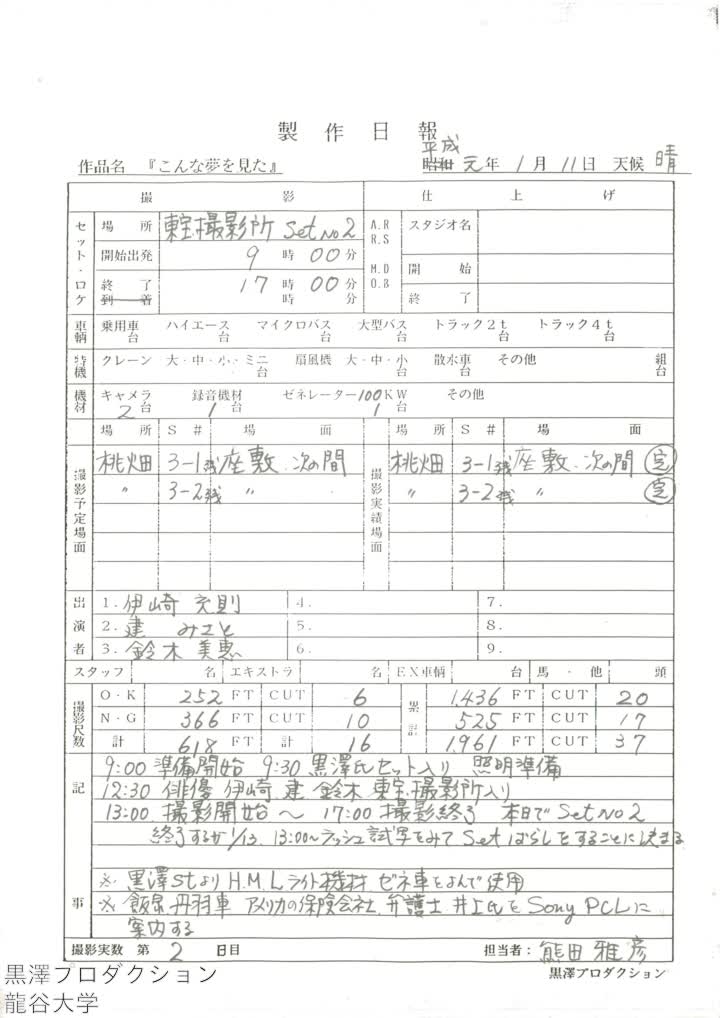 製作日報
作品名 『こんな夢を見た』 平成 昭和 元年 1月11日 天候 晴
撮影 仕上げ
セット・ロケ 場所 東宝撮影所 Set No2 A.R R.S M.D O.B スタジオ名
開始出発 9時00分 開始
終了 到着 17時00分 時 分 終了
車輌 乗用車 台 ハイエース 台 マイクロバス 台 大型バス 台 トラック2t 台 トラック4t 台
特機 クレーン 大・中・小・ミニ 台 扇風機 大・中・小 台 散水車 台 その他 組 台
機材 キャメラ 2台 録音機材 1台 ゼネレーター100KW 1台 その他
撮影予定場面 場所 S# 場面 撮影実績場面 場所 S# 場面
桃畑 3-1残 座敷・次の間 桃畑 3-1残 座敷・次の間 完
〃 3-2残 〃 〃 3-2残 〃 完
出演者 1. 伊崎 充則 4. 7.
2. 建 みさと 5. 8.
3. 鈴木 美恵 6. 9.
スタッフ 名 エキストラ 名 EX車輌 台 馬・他 頭
撮影尺数 O・K 252 FT CUT 6 累計 1,436 FT CUT 20
N・G 366 FT CUT 10 525 FT CUT 17
計 618 FT 計 16 1,961 FT CUT 37
記事 9:00 準備開始 9:30 黒澤氏セット入り 照明準備
12:30 俳優 伊崎 建 鈴木 東宝撮影所入り
13:00 撮影開始 〜 17:00 撮影終了 本日でSet No2
終了するが1/13. 13:00〜ラッシュ試写をみてSetばらしをすることに決まる
※ 黒澤stより H.M.L ライト機材 ゼネ車をよんで使用
※ 飯泉 丹羽車 アメリカの保険会社、弁護士 井上氏をSony PCLに
案内する
撮影実数 第2日目 担当者: 熊田 雅彦
黒澤プロダクション
黒澤プロダクション
龍谷大学